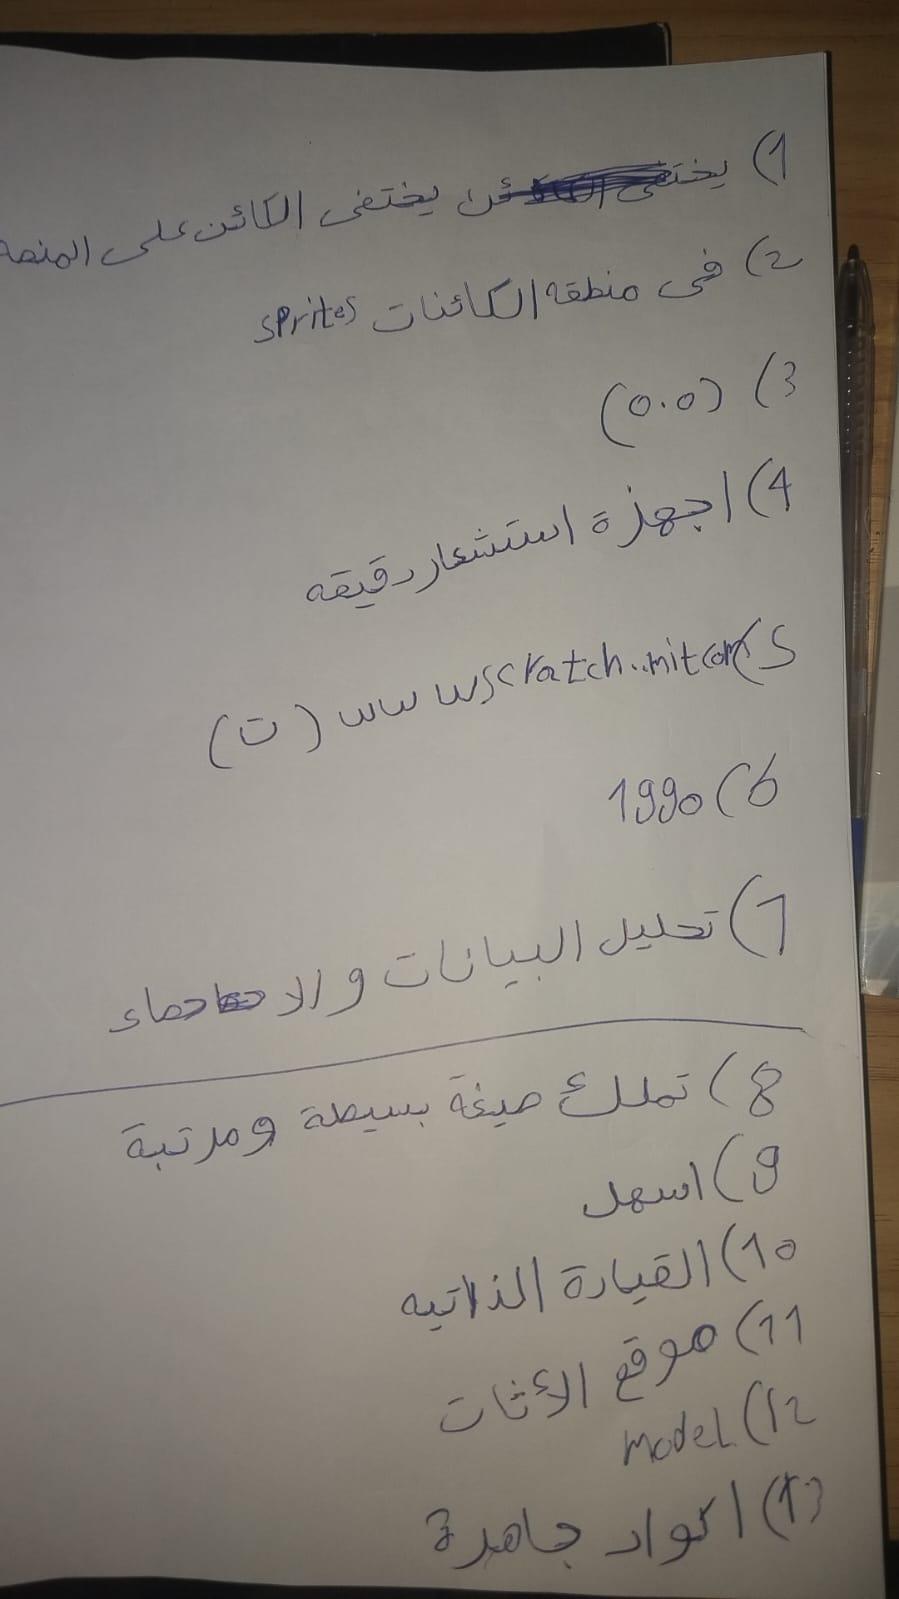 1) يختفى الكائن يختفى الكائن على المنصه
2) فى منطقه الكائنات sprites
3) (0.0)
4) اجهزة استشعار دقيقه
5) www scratch..mit com (ت)
6) 1990
7) تحليل البيانات والاحصاء
8) تملك صيغة بسيطة ومرتبة
9) اسهل
10) القيادة الذاتيه
11) موقع الأثات
12) model
13) اكواد جاهزة